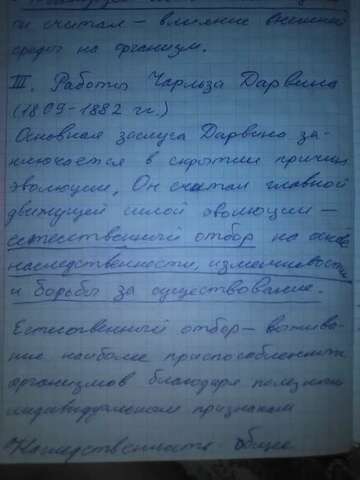 ти считал — влияние внешней
среды на организм.
III. Работы Чарльза Дарвина
(1809-1882 гг.)
Основная заслуга Дарвина за-
ключается в скрытии причин
эволюции. Он считал главной
движущей силой эволюции —
естественный отбор на основе
наследственности, изменчивости
и борьбы за существование.
Естественный отбор — выжива-
ние наиболее приспособленных
организмов благодаря полезным
индивидуальным признакам
Наследственность - общее